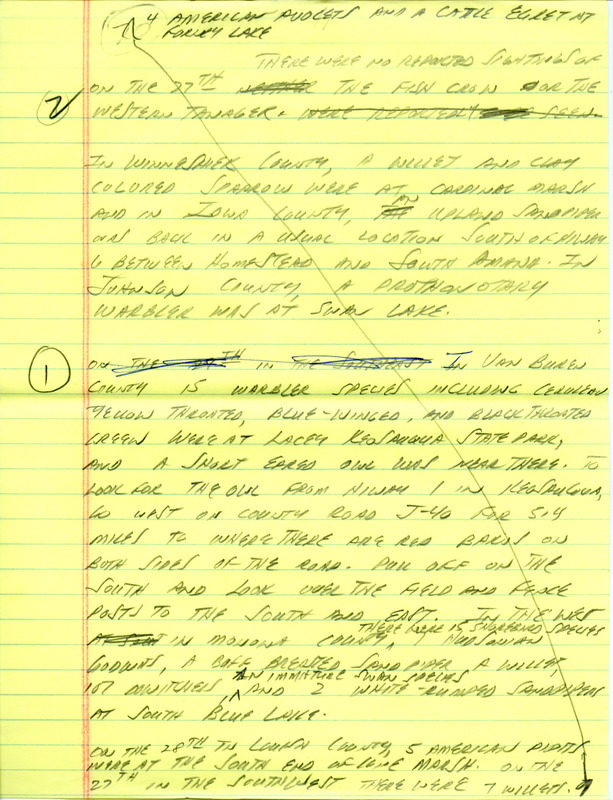 4 AMERICAN AVOCETS AND A CATTLE EGRET AT
LAKE
THERE WERE NO REPORTED SIGHTINGS OF
2
ON THE 27TH NEITHER THE FISH CROW OR THE
WESTERN TANAGER. WERE REPORTED SEEN.
IN WINNESHIEK COUNTY, A WILLET AND CLAY
COLORED SPARROW WERE AT CARDINAL MARSH
AND IN IOWA COUNTY, AN UPLAND SANDPIPER
WAS BACK IN A USUAL LOCATION SOUTH OF HIWAY
6 BETWEEN HOMESTEAD AND SOUTH AMANA. IN
JOHNSON COUNTY, A PROTHONOTARY
WARBLER WAS AT SWAN LAKE.
1
ON THE TH IN THE SOUTHEAST IN VAN BUREN
COUNTY 15 WARBLER SPECIES INCLUDING CERULEAN
YELLOW THROATED, BLUE-WINGED, AND BLACK THROATED
GREEN WERE AT LACEY KEOSAUQUA STATE PARK,
AND A SHORT EARED OWL WAS NEAR THERE. TO
LOOK FOR THE OWL FROM HIWAY 1 IN KEOSAUQUA,
GO WEST ON COUNTY ROAD J-40 FOR 5.4
MILES TO WHERE THERE ARE RED BARNS ON
BOTH SIDES OF THE ROAD. PULL OFF ON THE
SOUTH AND LOOK OVER THE FIELD AND FENCE
POSTS TO THE SOUTH AND EAST. IN THE WEST
THERE WERE 15 SHOREBIRD SPECIES
IN MONONA COUNTY, HUDSONIAN
GODWITS, A BUFF BREASTED SANDPIPER, A WILLET,
AN IMMATURE SWAN SPECIES
107 DOWITCHERS, AND 2 WHITE-RUMPED SANDPIPERS
AT SOUTH BLUE LAKE.
ON THE 28TH IN COUNTY, 5 AMERICAN PIPITS
WERE AT THE SOUTH END OF CONE MARSH. ON THE
27TH IN THE SOUTHWEST THERE WERE 7 WILLETS,